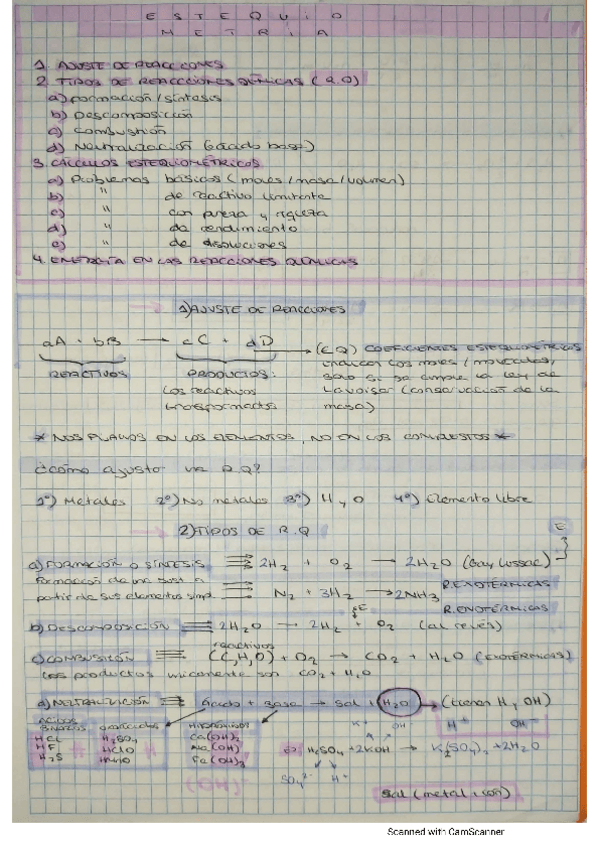 ESTEQUIO
METRÍA
1. AJUSTE DE REACCIONES
2. TIPOS DE REACCIONES QUÍMICAS (R.Q)
a) Formación/síntesis
b) Descomposición
c) Combustión
d) Neutralización (ácido base)
3. CÁLCULOS ESTEQUIOMÉTRICOS
a) Problemas básicos (moles/masa/volumen)
b) " de reactivo limitante
c) " con pureza y riqueza
d) " de rendimiento
e) " de disoluciones
4. ENERGÍA EN LAS REACCIONES QUÍMICAS
1) AJUSTE DE REACCIONES
aA + bB → cC + dD → (CQ) COEFICIENTES ESTEQUIOMÉTRICOS
indican los moles/moléculas,
REACTIVOS PRODUCTOS: solo si se cumple la ley de
Los reactivos Lavoisier (conservación de la
transformados masa)
* NOS FIJAMOS EN LOS ELEMENTOS, NO EN LOS COMPUESTOS *
¿Cómo ajusto una R.Q?
1º) Metales 2º) No metales 3º) H, O 4º) Elemento libre
2) TIPOS DE R.Q
E
a) FORMACIÓN O SÍNTESIS 2H₂ + O₂ → 2H₂O (Gay Lussac)
Formación de una sust. a R.EXOTÉRMICAS
partir de sus elementos N₂ + 3H₂ → 2NH₃
R.ENDOTÉRMICAS
b) DESCOMPOSICIÓN 2H₂O → 2H₂ + O₂ (al revés)
reactivos
c) COMBUSTIÓN (C,H,O) + O₂ → CO₂ + H₂O (EXOTÉRMICAS)
Los productos únicamente son CO₂ + H₂O
d) NEUTRALIZACIÓN Ácido + Base → Sal + H₂O → (tienen H, OH)
ÁCIDOS HIDRÓXIDOS K⁺ OH⁻ H⁺ OH⁻
HCl H₂SO₄ Ca(OH)₂
HF HClO Na(OH) H₂SO₄ + 2KOH → K₂(SO₄), + 2H₂O
H₂S Fe(OH)₃
(OH)⁻ SO₄²⁻ H⁺
Sal (metal + ion)
Scanned with CamScanner